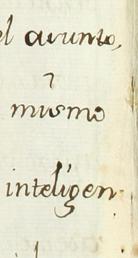 el asunto,
y
mismo
inteligen-